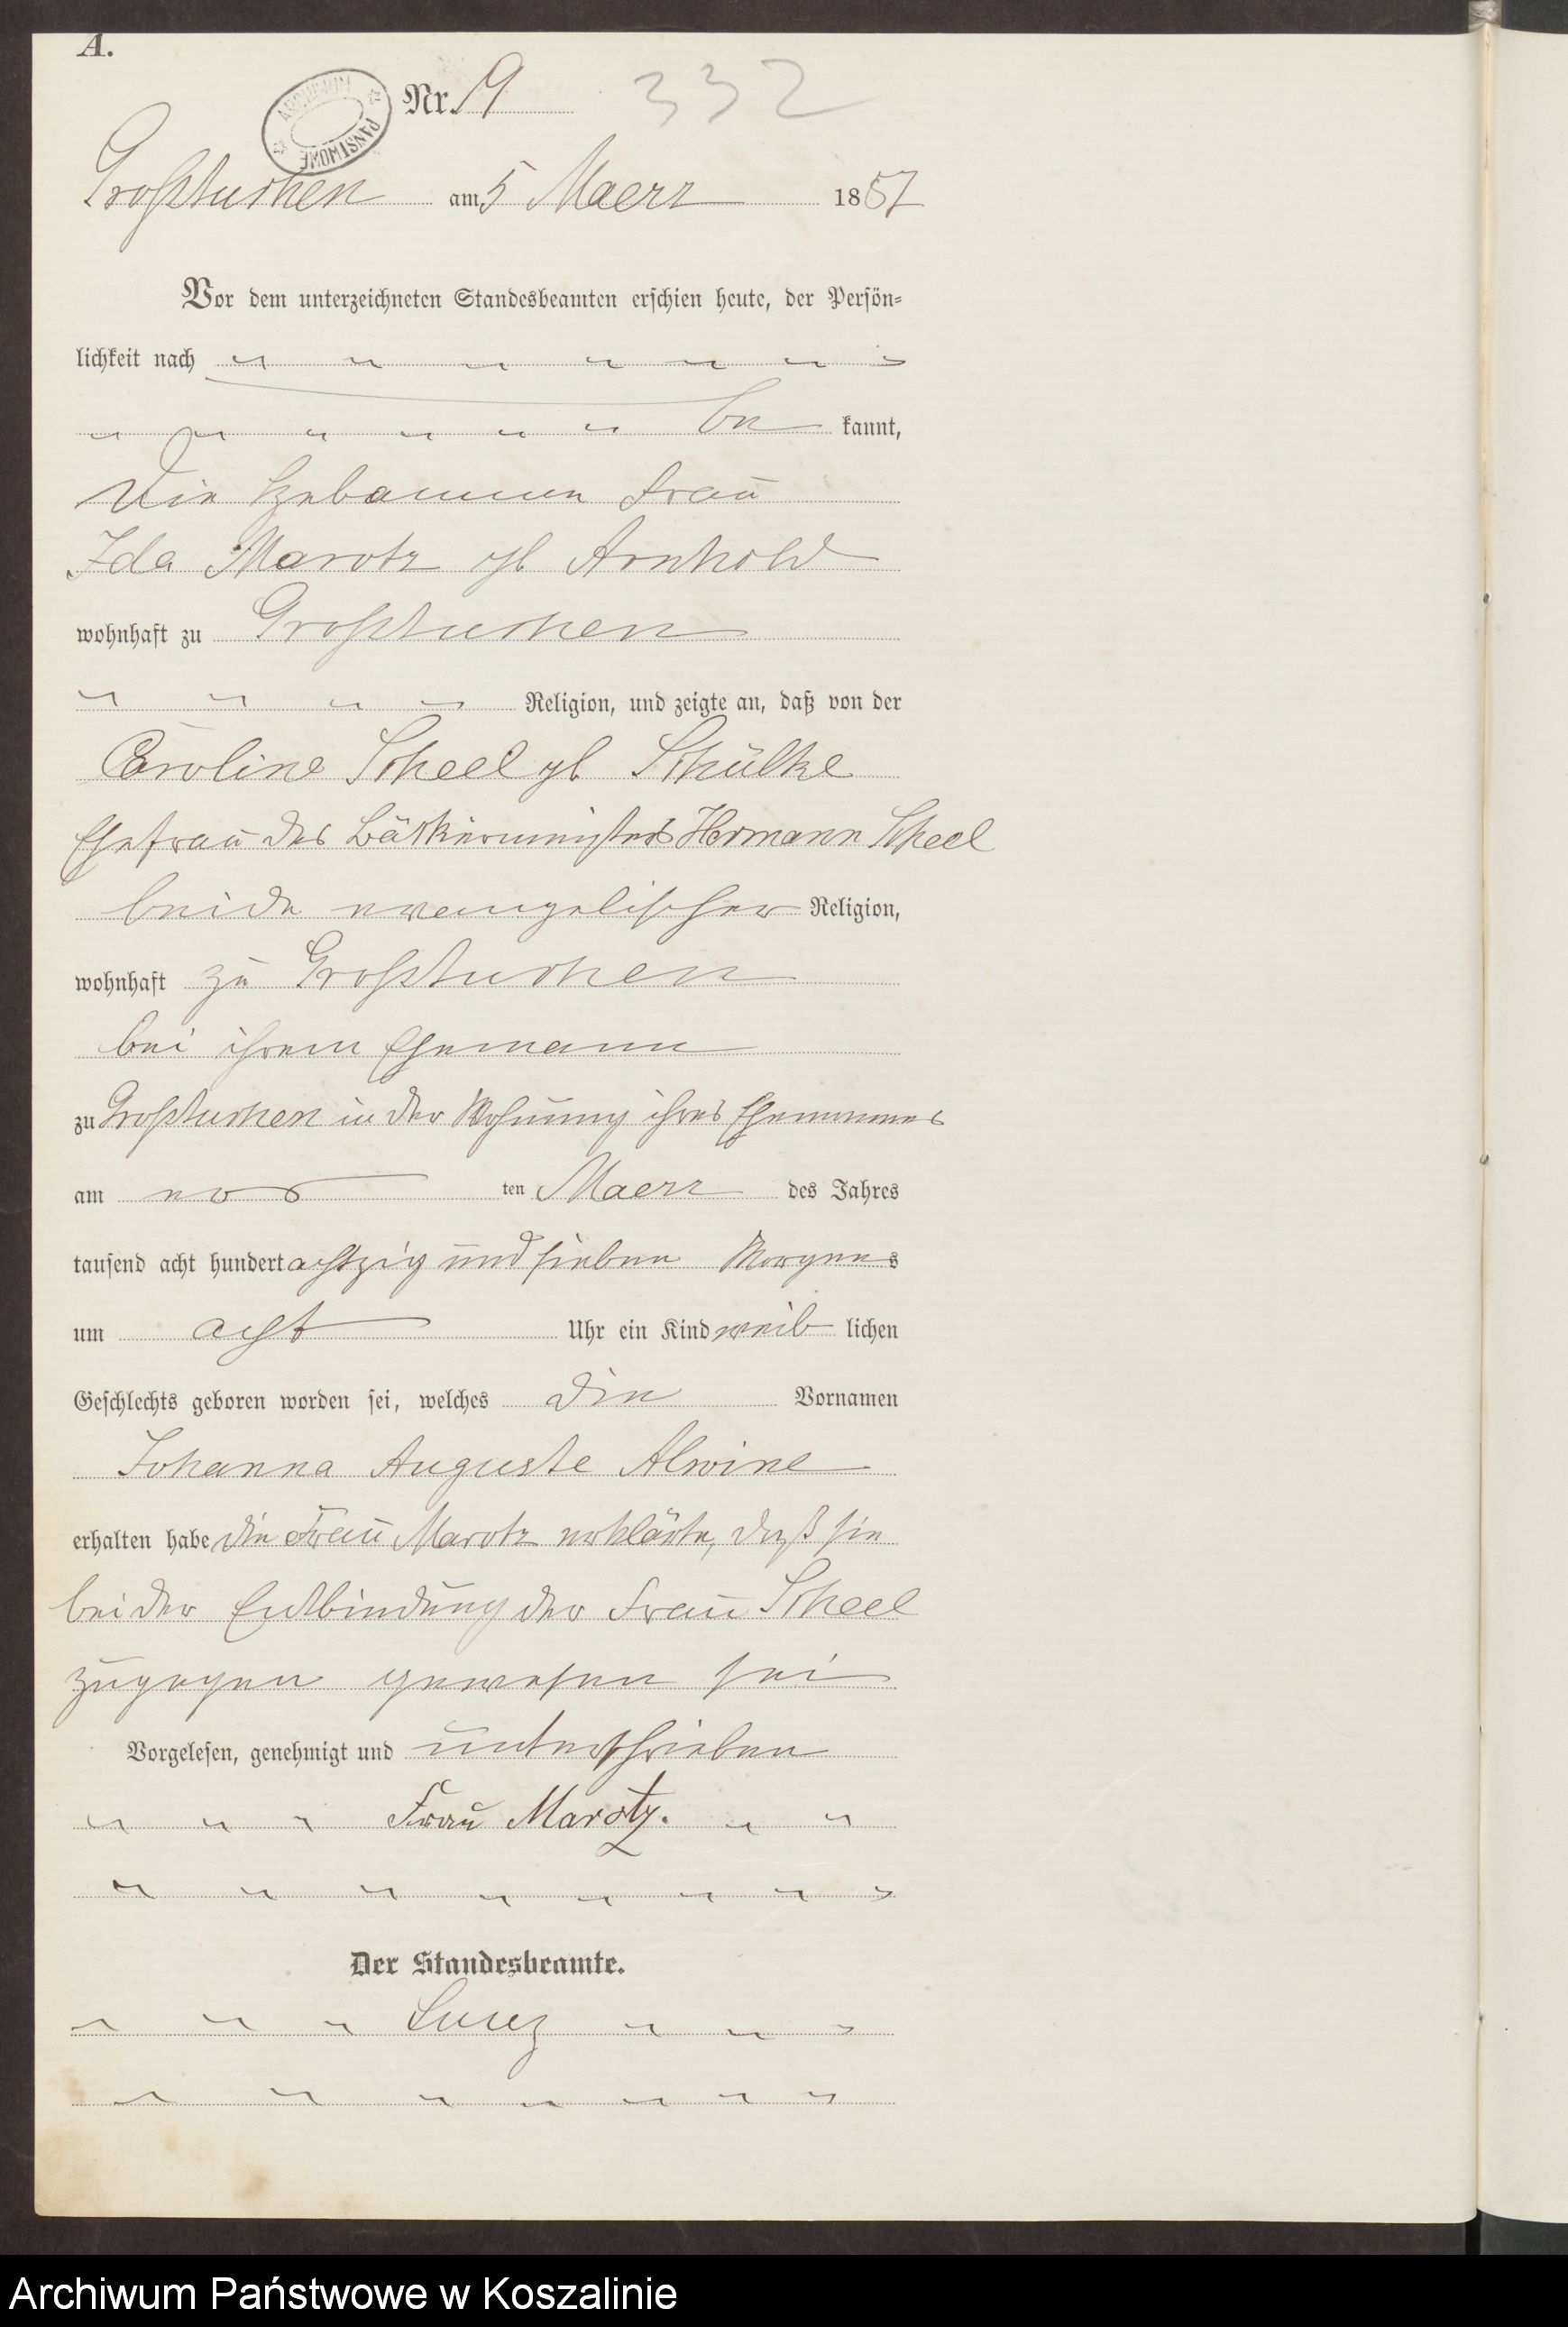 A.
ARCHIWUM PAŃSTWOWE
Nr. 19 332
Großtuchen am 5 Maerz 1887
Vor dem unterzeichneten Standesbeamten erschien heute, der Persön-
lichkeit nach
be kannt,
die Hebamme Frau
Ida Marotz gb Arnhold
wohnhaft zu Großtuchen
Religion, und zeigte an, daß von der
Caroline Scheel gb Schülke
Ehefrau des Bäckermeisters Hermann Scheel
beide evangelischer Religion,
wohnhaft zu Großtuchen
bei ihrem Ehemann
zu Großtuchen in der Wohnung ihres Ehemannes
am ten Maerz des Jahres
tausend acht hundert achtzig und sieben Morgens
um acht Uhr ein Kind weib lichen
Geschlechts geboren worden sei, welches die Vornamen
Johanna Auguste Alwine
erhalten habe die Frau Marotz erklärte, daß sie
bei der Entbindung der Frau Scheel
zugegen gewesen sei
Vorgelesen, genehmigt und unterschrieben
Frau Marotz.
Der Standesbeamte.
Archiwum Państwowe w Koszalinie